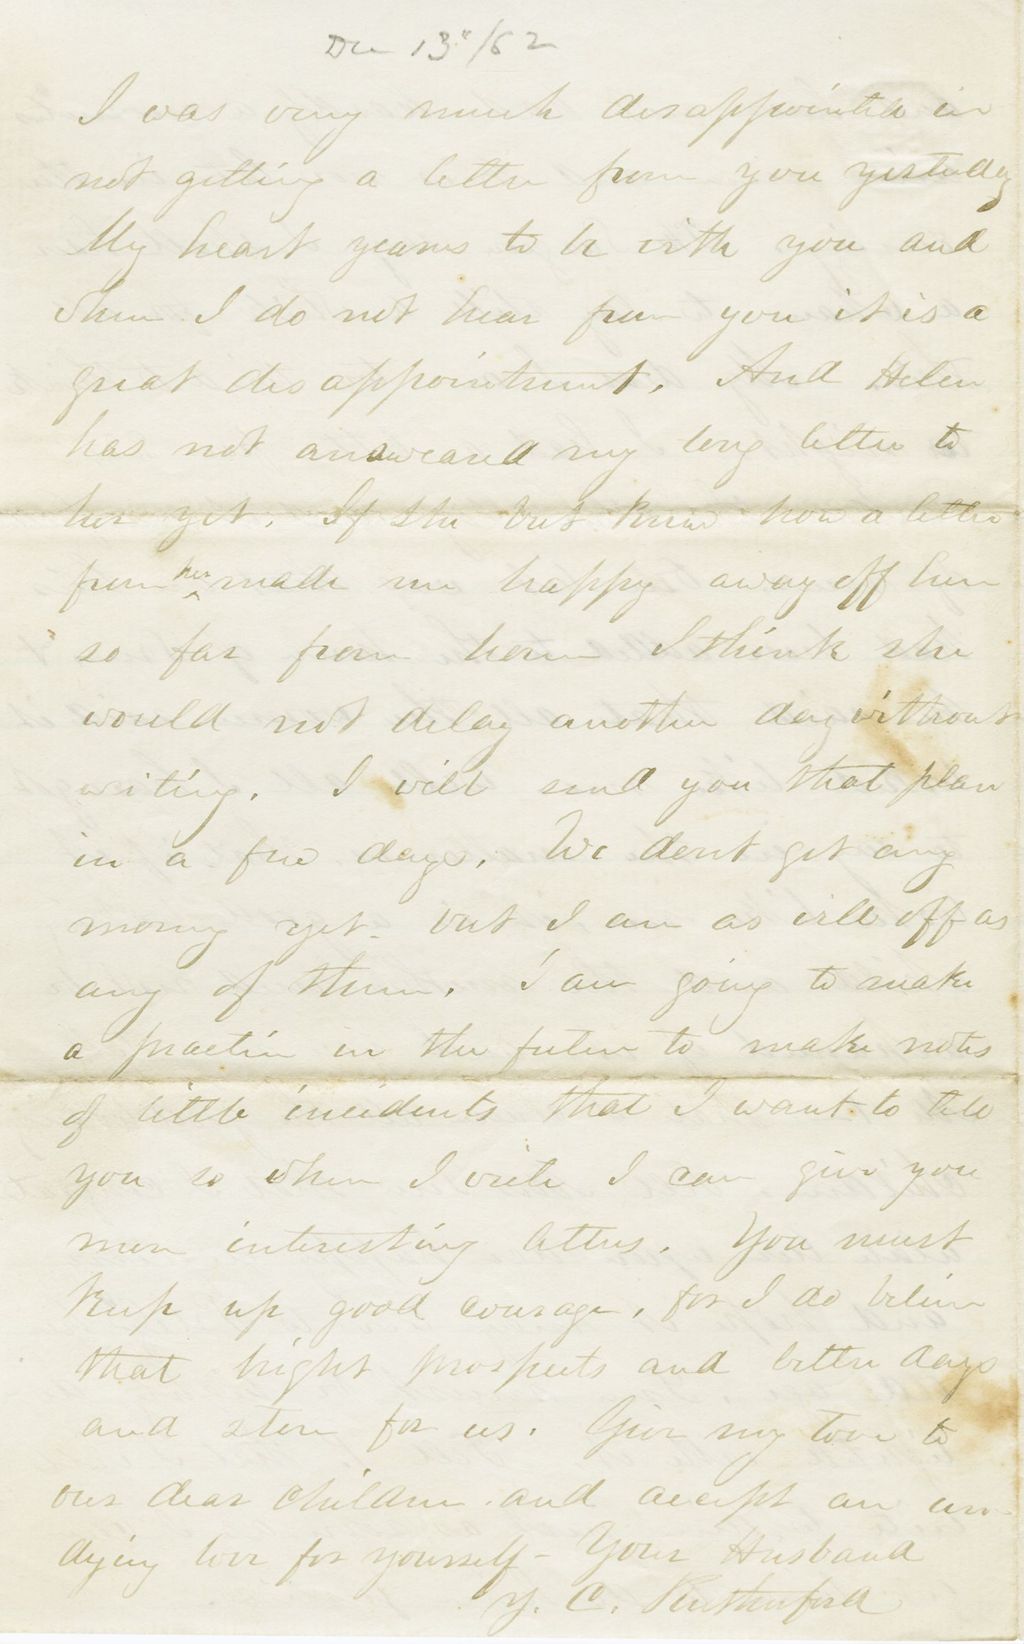 Dec 13"/62
I was very much disappointed in
not getting a letter from you yesterday
My heart yearns to be with you and
when I do not hear from you it is a
great disappointment. And Helen
has not answeared my long letter to
her yet. If she but knew how a letter
from her made me happy away off here
so far from home I think she
would not delay another day without
writing. I will send you that plan
in a few days. We dont get any
money yet. but I am as well off as
any of them. I am going to make
a practice in the future to make notes
of little incidents that I want to tell
you so when I write I can give you
more interesting letters. You must
keep up good courage, for I do believe
that bright prospects and better days
and store for us. Give my love to
our dear children and accept an un-
dying love for yourself - Your Husband
Y. C. Rutherford